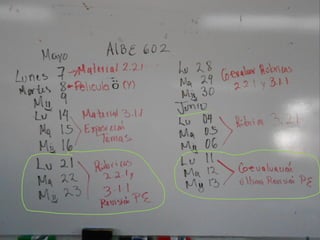 AIBE 602
Mayo
Lunes 7 Material 2.21
Martes 8 Película (Y)
Mi 9
Lu 14 Material 3.11
Ma 15 Exposición
Mi 16 Temas
Lu 21 Rúbricas
Ma 22 2.2.1 y
Mi 23 3.1.1
Revisión PE
Lu 28 Coevaluar Rúbricas
Ma 29 2.2.1 y 3.1.1
Mi 30
Junio
Lu 04
Ma 05 Rúbrica 3.2.1
Mi 06
Lu 11
Ma 12 Coevaluación
My 13 última Revisión PE